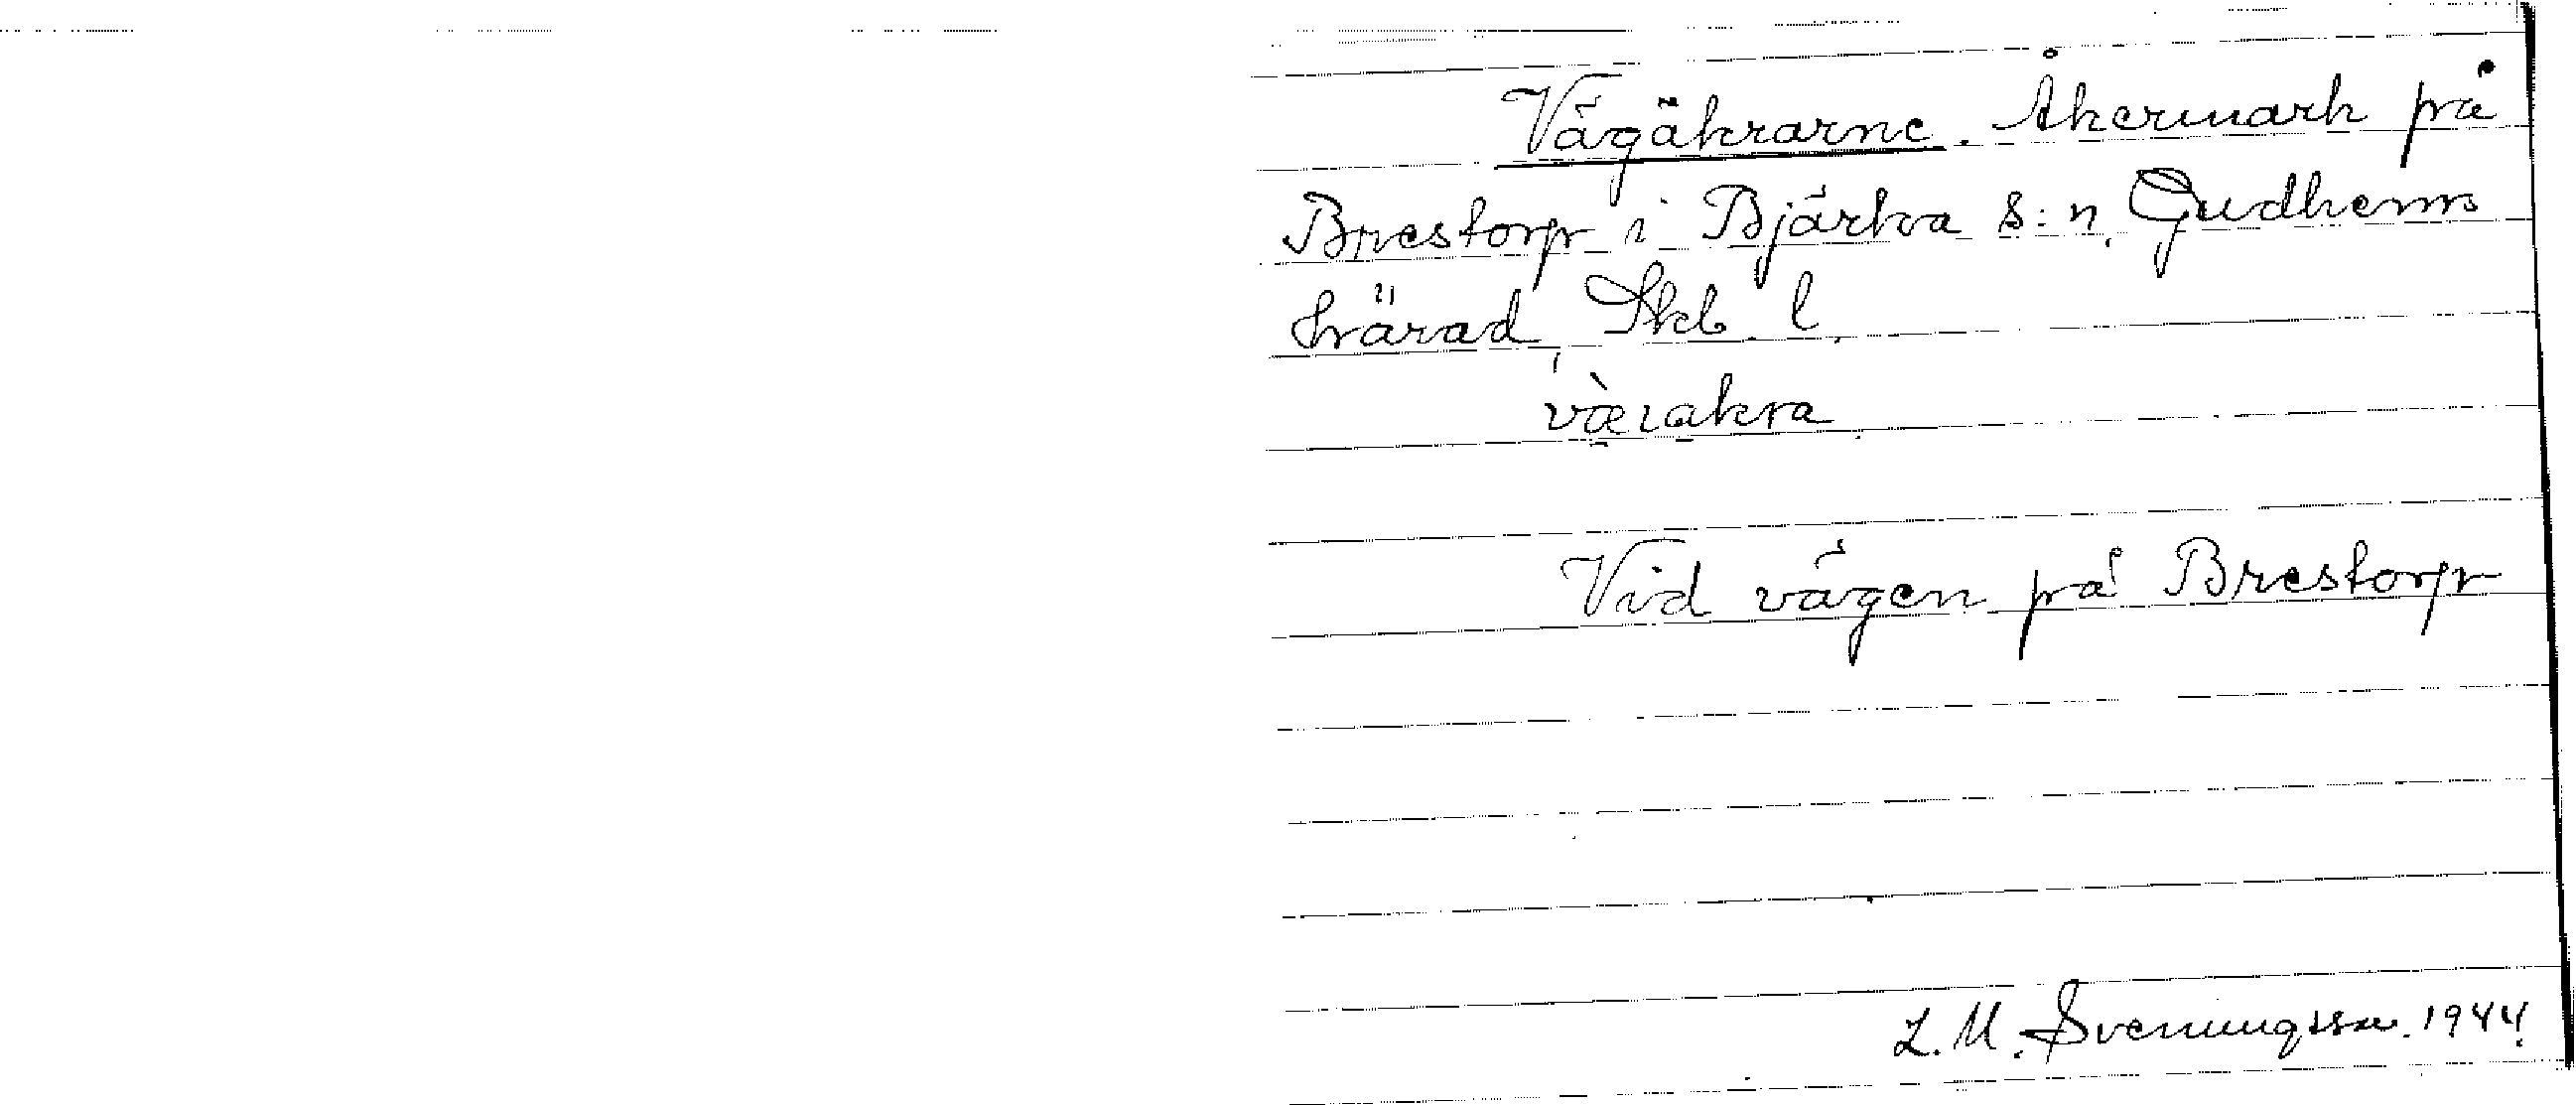 Vägåkrarne. Åkermark på
Brestorp i Bjärka s:n, Gudhems
härad, Skb. l.
væ̀rakra
Vid vägen på Brestorp
L. M. Svenungsson. 1944.